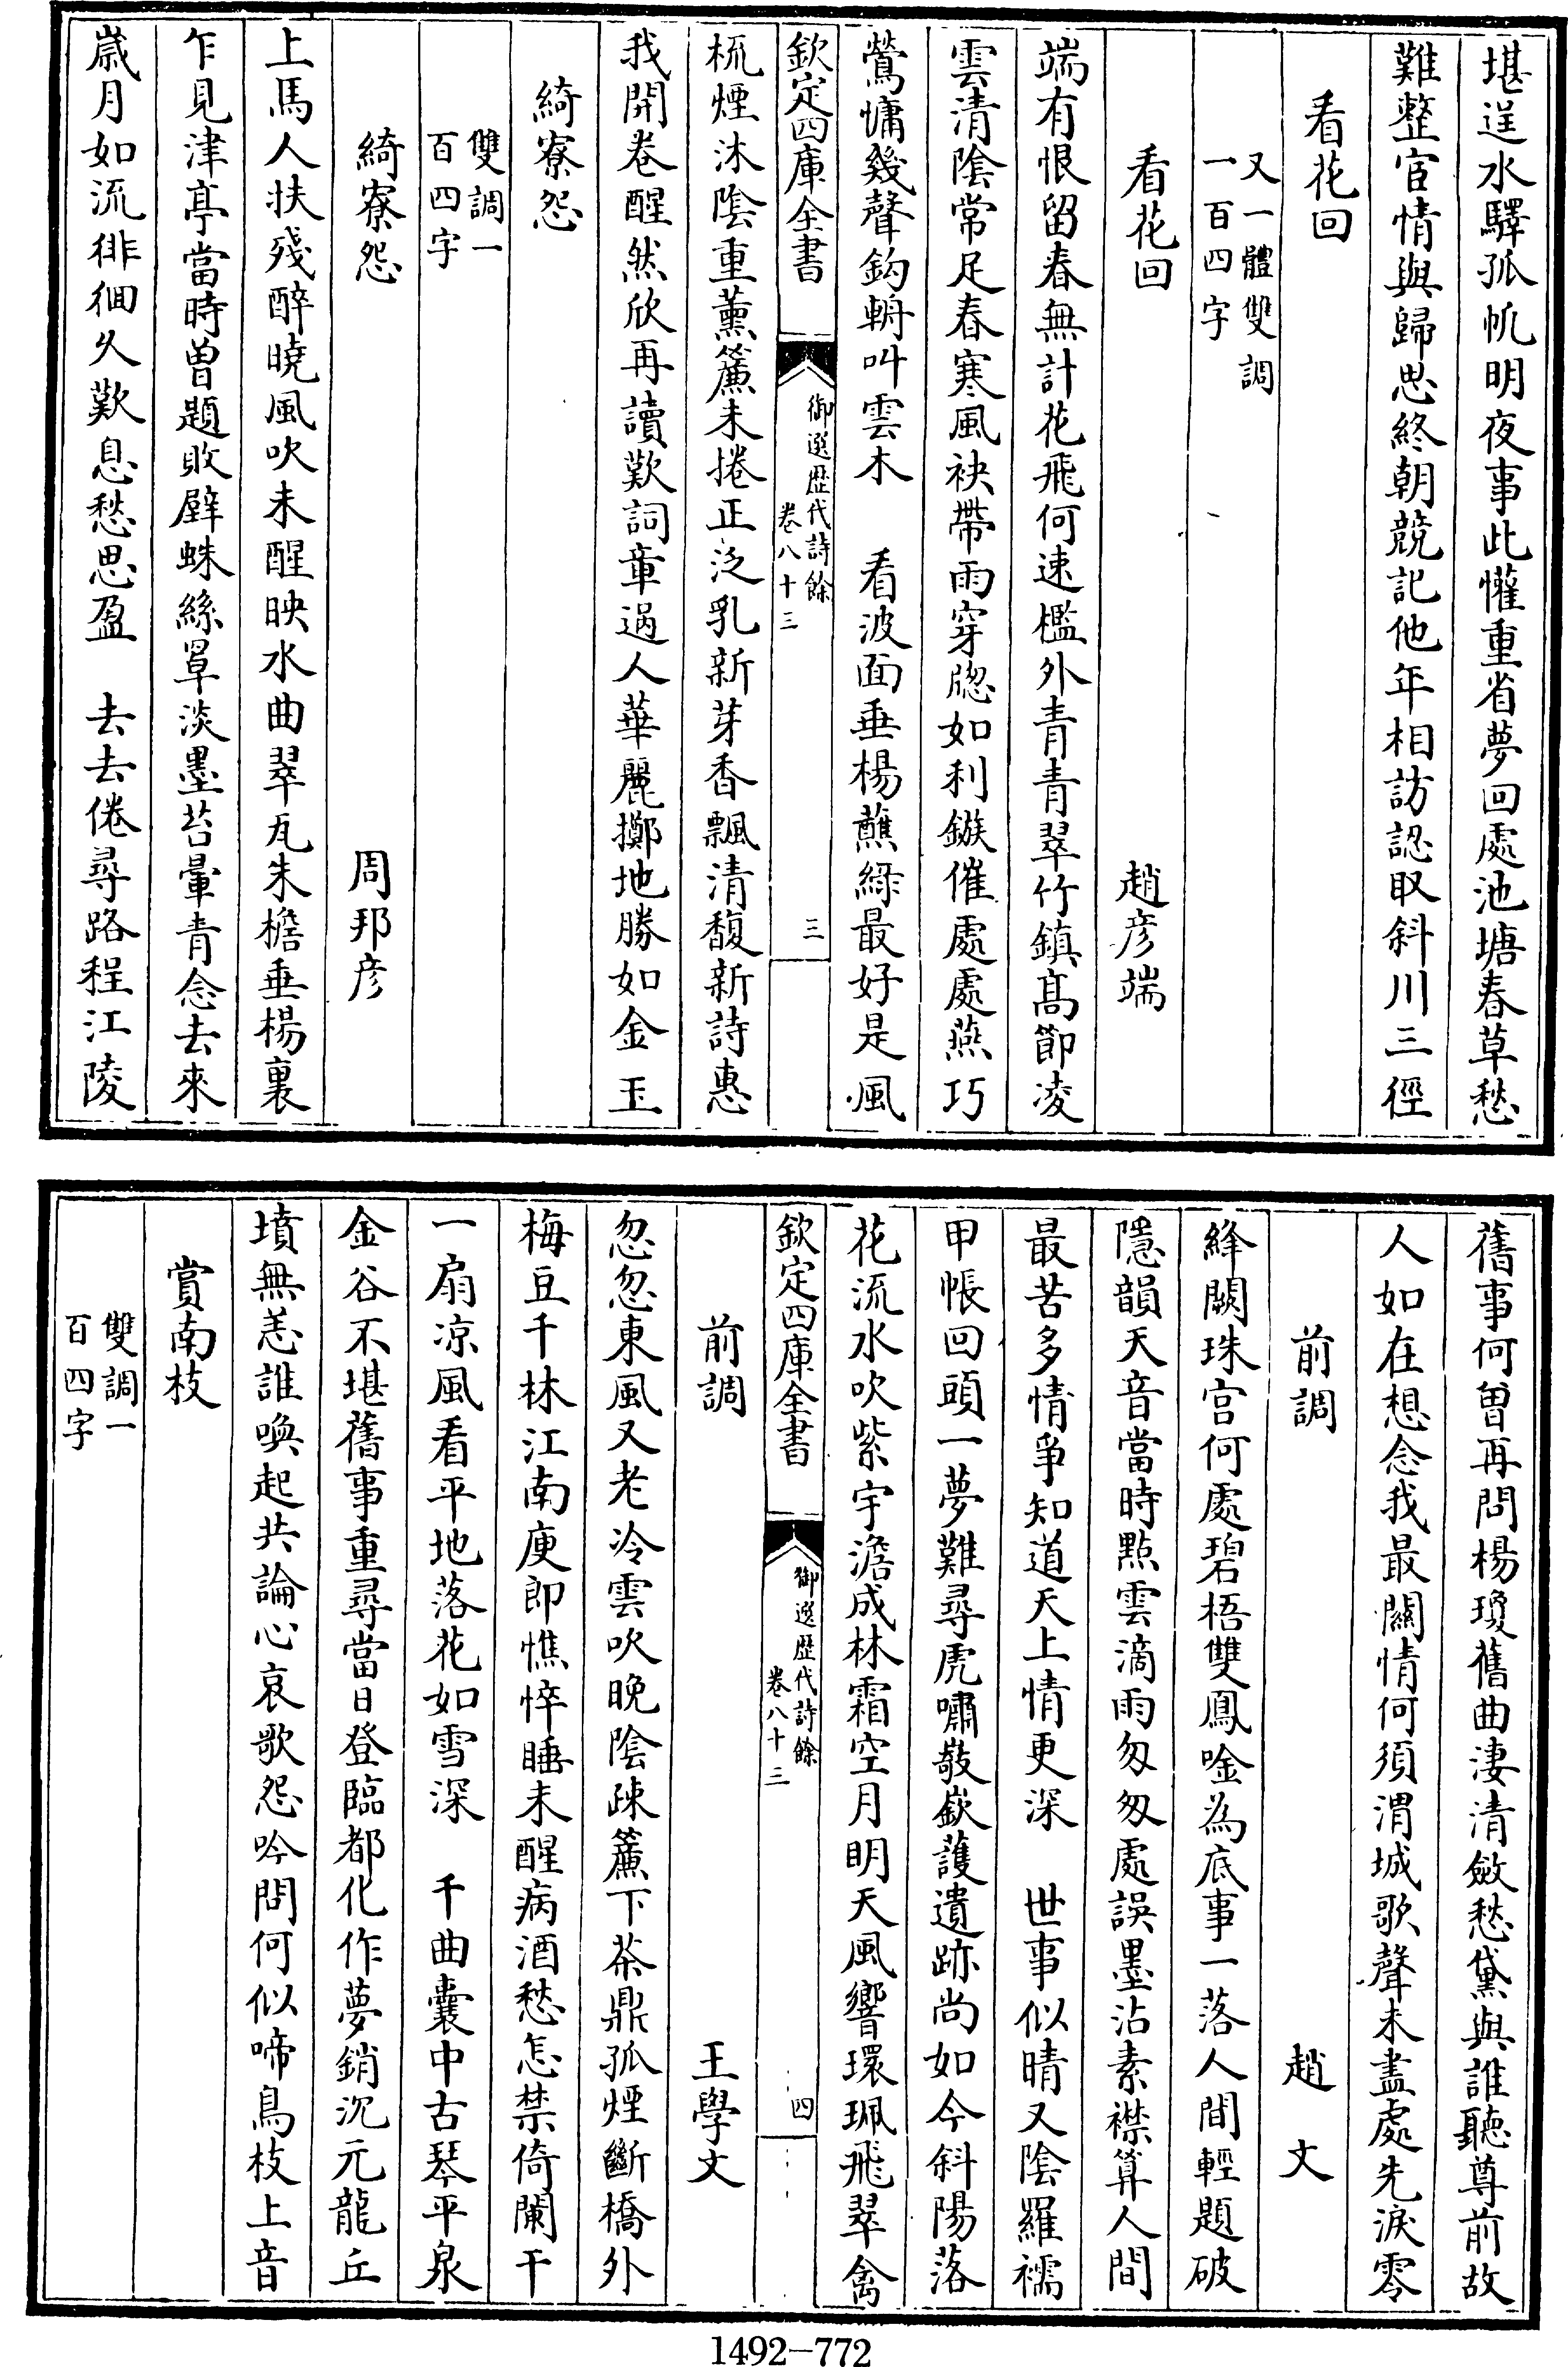 堪逞水驛孤帆明夜事此懽重省夢回處池塘春草愁
難整宦情與歸思終朝競記他年相訪認取斜川三徑
看花回
又一體雙調
一百四字
看花回 趙彦端
端有恨留春無計花飛何速檻外青青翠竹鎮髙節凌
雲清隂常足春寒風袂帶雨穿牕如利鏃催處處燕巧
鶯慵幾聲鈎輈叫雲木 看波面垂楊蘸緑最好是風
欽定四庫全書
御選歴代詩餘
卷八十三
三
梳煙沐隂重薰簾未捲正泛乳新芽香飄清馥新詩惠
我開卷醒然欣再讀歎詞章過人華麗擲地勝如金玉
綺寮怨
雙調一
百四字
綺寮怨 周邦彦
上馬人扶殘醉曉風吹未醒映水曲翠瓦朱檐垂楊裏
乍見津亭當時曽題敗壁蛛絲罩淡墨苔暈青念去來
嵗月如流徘徊久歎息愁思盈 去去倦尋路程江陵
舊事何曽再問楊瓊舊曲淒清斂愁黛與誰聽尊前故
人如在想念我最關情何須渭城歌聲未盡處先淚零
前調 趙文
絳闕珠宫何處碧梧雙鳳唫為底事一落人間輕題破
隱韻天音當時點雲滴雨匆匆處誤墨沾素襟算人間
最苦多情爭知道天上情更深 世事似晴又隂羅襦
甲帳回頭一夢難尋虎嘯㪣嶔䕶遺跡尚如今斜陽落
花流水吹紫宇澹成林霜空月明天風響環珮飛翠禽
欽定四庫全書
御選歴代詩餘
卷八十三
四
前調 王學文
忽忽東風又老冷雲吹晚隂疎簾下茶鼎孤煙斷橋外
梅豆千林江南庾郎憔悴睡未醒病酒愁怎禁倚闌干
一扇凉風看平地落花如雪深 千曲囊中古琴平泉
金谷不堪舊事重尋當日登臨都化作夢銷沉元龍丘
墳無恙誰喚起共論心哀歌怨吟問何似啼鳥枝上音
賞南枝
雙調一
百四字
1492-772